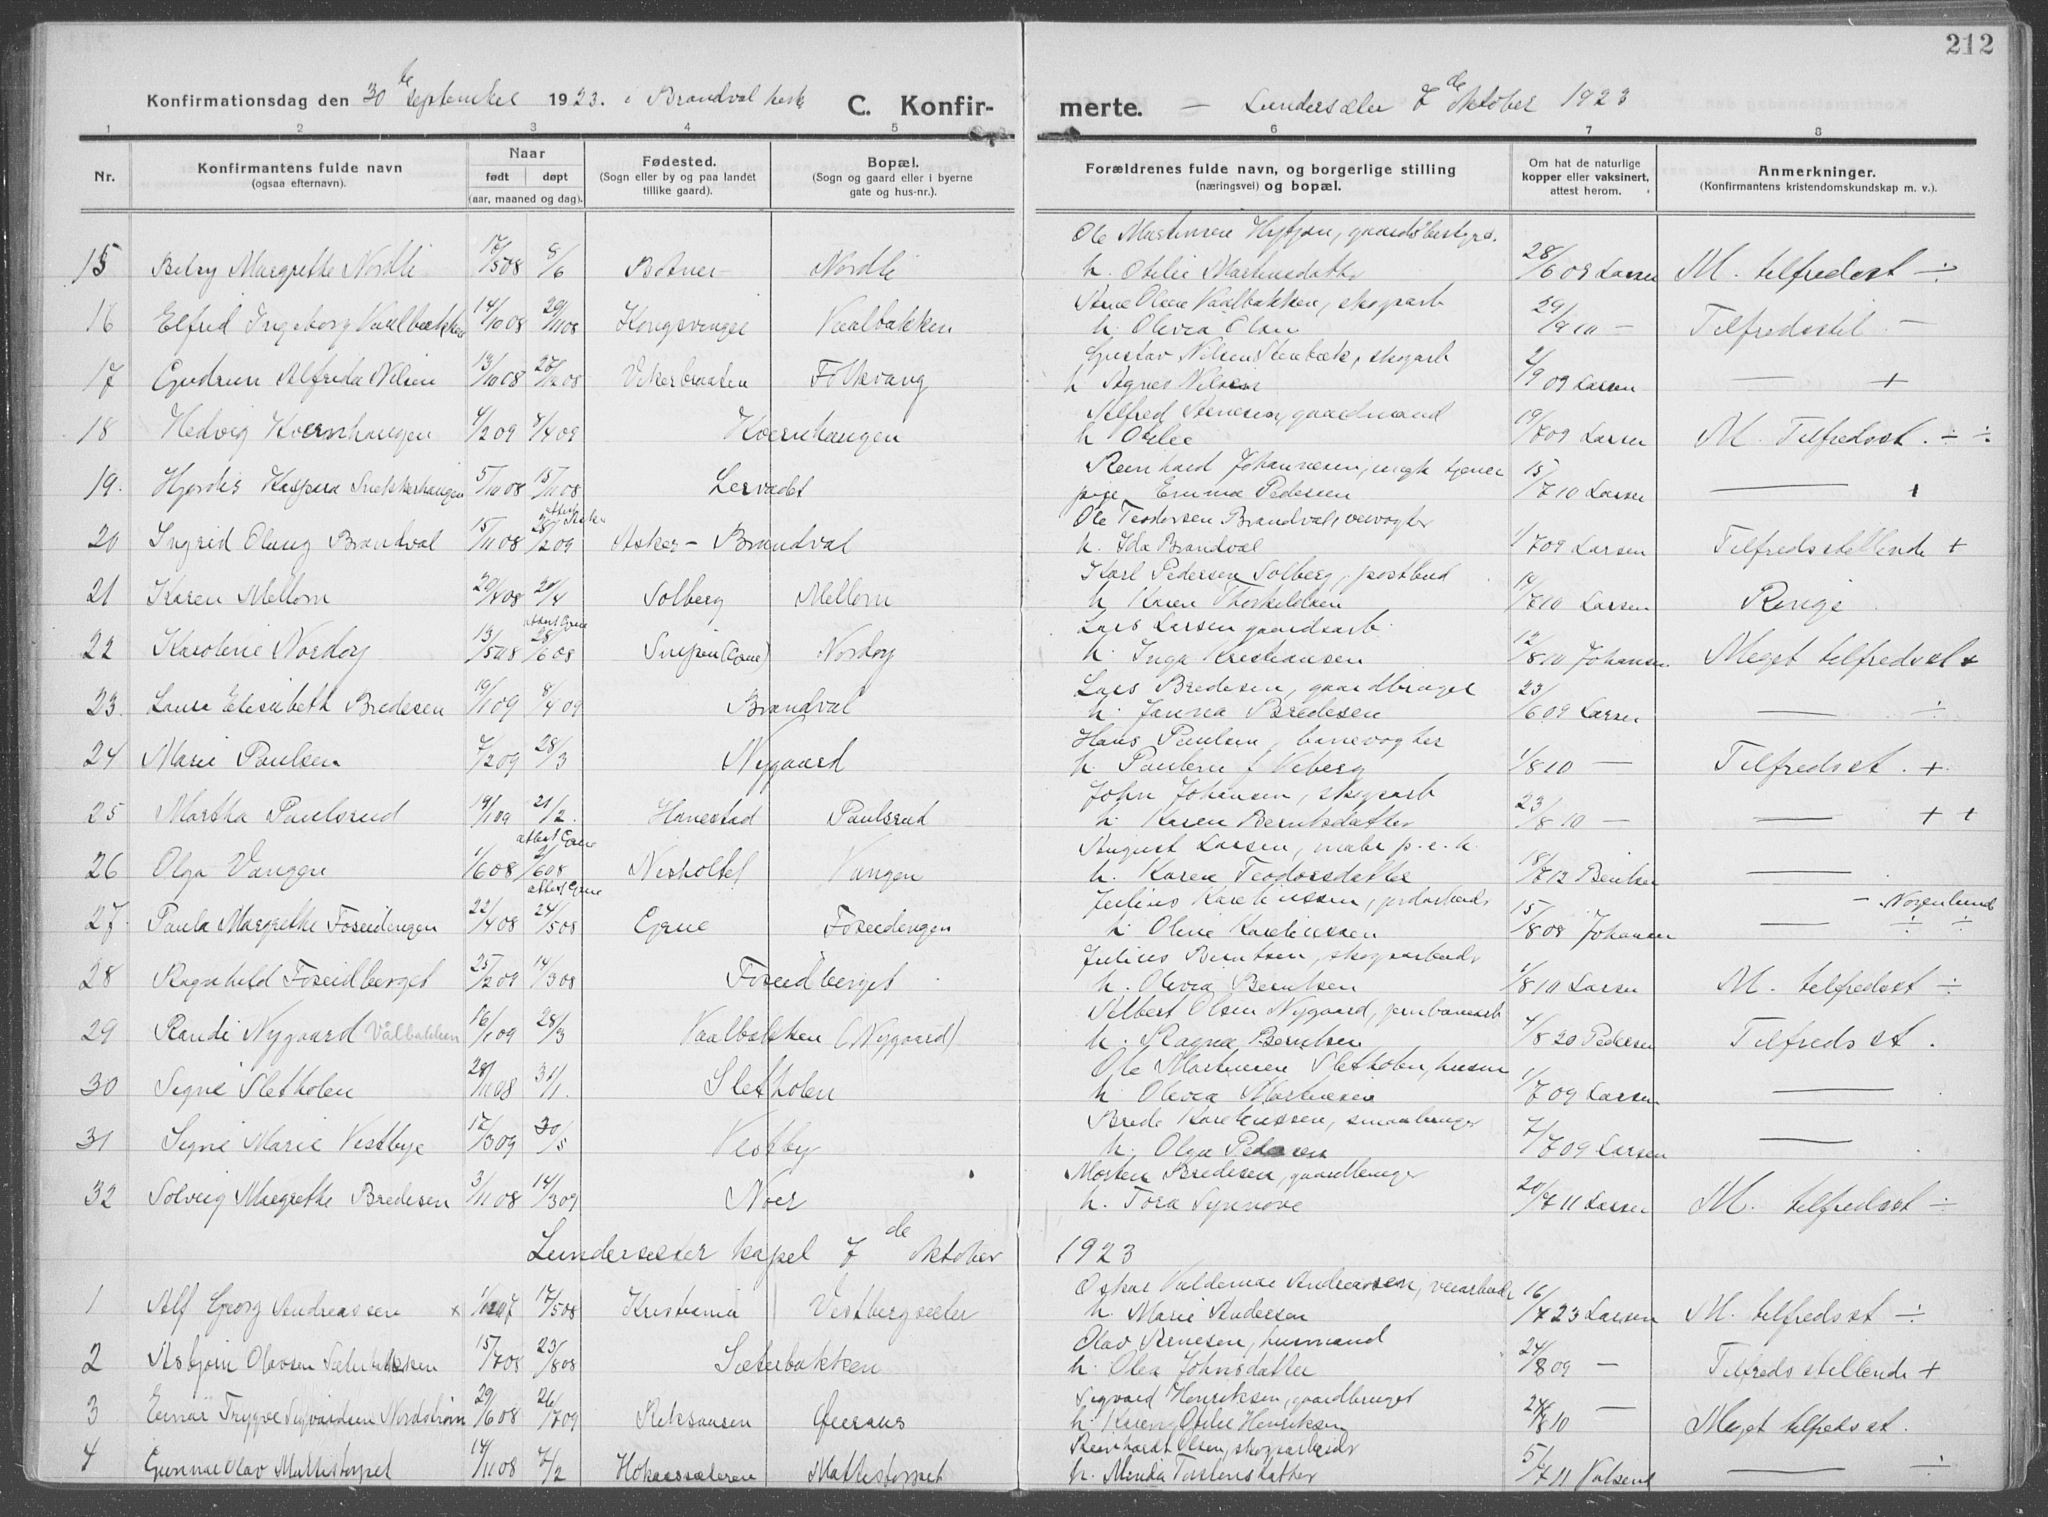 212
Konfirmationsdag den 30te September 1923. i Brandval kirke C. Konfir-
merte. — Lundersæter 7de Oktober 1923
1 2 3 4 5 6 7 8
Nr. Konfirmantens fulde navn (ogsaa efternavn). Naar født døpt (aar, maaned og dag). Fødested. (Sogn eller by og paa landet tillike gaard). Bopæl. (Sogn og gaard eller i byerne gate og hus-nr.). Forældrenes fulde navn, og borgerlige stilling (næringsvei) og bopæl. Om hat de naturlige kopper eller vaksinert, attest herom. Anmerkninger. (Konfirmantens kristendomskundskap m. v.).
Ole Martinsen
15 Betsy Margrethe Nordli 17/5 08 8/6 Botner Nordli h. Otilie Martinsdatter 28/6 09 Larsen M. tilfredsst ÷
Arne Olsen Vaalbakken, skogsarb
16 Elfred Ingeborg Vaalbakken 14/10 08 29/11 08 Kongsvinger Vaalbakken h. Olivia Olsen 29/9 10 — Tilfredsstil —
Gustav Nilsen Stenbæk, skogarb
17 Gudrun Alfrida Nilsen 13/10 08 27/12 08 Folkvang h Agnes Nilsen 2/9 09 Larsen — +
Alfred Arnesen, gaardmand
18 Hedvig Kvernhaugen 4/2 09 4/4 09 Kvernhaugen h Otilie 19/7 09 Larsen M. Tilfredsst. ÷ ÷
Reinhard Johannesen, ungk tjener
19. Hjørdis Kaspara Snekkerhaugen 5/10 08 15/11 08 Lervadet pige Emma Pedersen 15/7 10 Larsen — +
attest Asker
Ole Teodorsen Brandval, veivogter
20 Ingrid Olaug Brandval 15/11 08 28/2 09 Asker — Brandval h. Ida Brandval 1/7 09 Larsen Tilfredsstillende +
Karl Pedersen Solberg, postbud
21 Karen Mellom 29/1 08 20/4 Solberg Mellom h Karen Thorkildsen 14/7 10 Larsen
attest Grue
Lars Larsen gaardsarb.
22 Karoline Nordby 13/5 08 28/6 08 (Grue) Nordby h. Inga Kristiansen 12/8 10 Johansen Meget tilfredsst +
Lars Bredesen, gaardbruger
23. Laura Elisabeth Bredesen 19/1 09 8/4 09 Brandval h. Janna Bredesen 23/6 09 Larsen — ÷
Hans Paulsen, banevogter
24 Marie Paulsen 7/2 09 28/3 Nygaard h. Pauline f Veberg 1/8 10 — Tilfredsst. +
John Johansen, skogsarb
25 Martha Paulsrud 19/1 09 21/2. Hanestad Paulsrud h. Karen Berntsdatter 23/8 10 — — + +
attest Grue
August Larsen, maler
26 Olga Vangen 1/6 08 Nesholtet Vangen h. Karen Teodorsdatter 18/7 12 Berntsen —
attest Grue
Julius Karelinssen, jordarbeider
27. Paula Margrethe Foseidengen 22/4 08 24/5 08 Grue Foseidengen h. Oline Karelinssen 15/8 08 Johansen — — Norenlund ÷ ÷
Julius Berntsen, skogsarbeider
28 Ragnhild Foseidberget 25/2 09 14/3 08 Foseidberget h. Olivia Berntsen 1/8 10 Larsen M. tilfredsst ÷
Albert Olsen Nygaard, jernbanearb
29 Randi Nygaard Vålbakken 16/1 09 28/3 Vaalbakken (Nygaard) h. Ragna Berntsen 4/8 20 Pedersen Tilfredsst.
Ole Martinsen Sletholen, husm
30 Signe Sletholen 28/11 08 31/1. Sletholen h Olivia Martinsen 1/7 09 Larsen —
Brede Karelinssen, smaabruger
31 Signe Marie Vestbye 17/3 09 30/5 Vestby h. Olga Pedersen 7/7 09 Larsen —
Morten Bredesen, gaardbruger
32 Solveig Margrethe Bredesen 3/11 08 14/3 09 Noer h. Tora Synnøve 20/7 11 Larsen M. tilfredsst ÷
Lundersæter kapel 7de Oktober 1923
Oskar Valdemar Andreassen, veiarbeider
1 Alf Georg Andreassen × 17/5 08 Kristiania Vestbergsæter h. Marie Andersen 16/7 23 Larsen M. tilfredsst ÷
Olav Arnesen, husmand
2 Asbjørn Olavsen Sæterbakken 15/7 08 23/8 08 Sæterbakken h. Olea Johnsdatter 24/8 09 — Tilfredsstillende +
Sigvard Henriksen, gaardbruger
3 Einar Trygve Sigvardsen Nordstrøm 29/6 08 26/7 09 Riksaasen Øieraas h. Karen Otilie Henriksen 24/8 10 Meget tilfredsst.
Reinhardt Olsen, skogsarbeider
4 Gunnar Olav Mattistorpet 14/11 08 7/2 Hokaassæteren Mattistorpet h. Minda Torstensdatter 5/7 11 — ÷